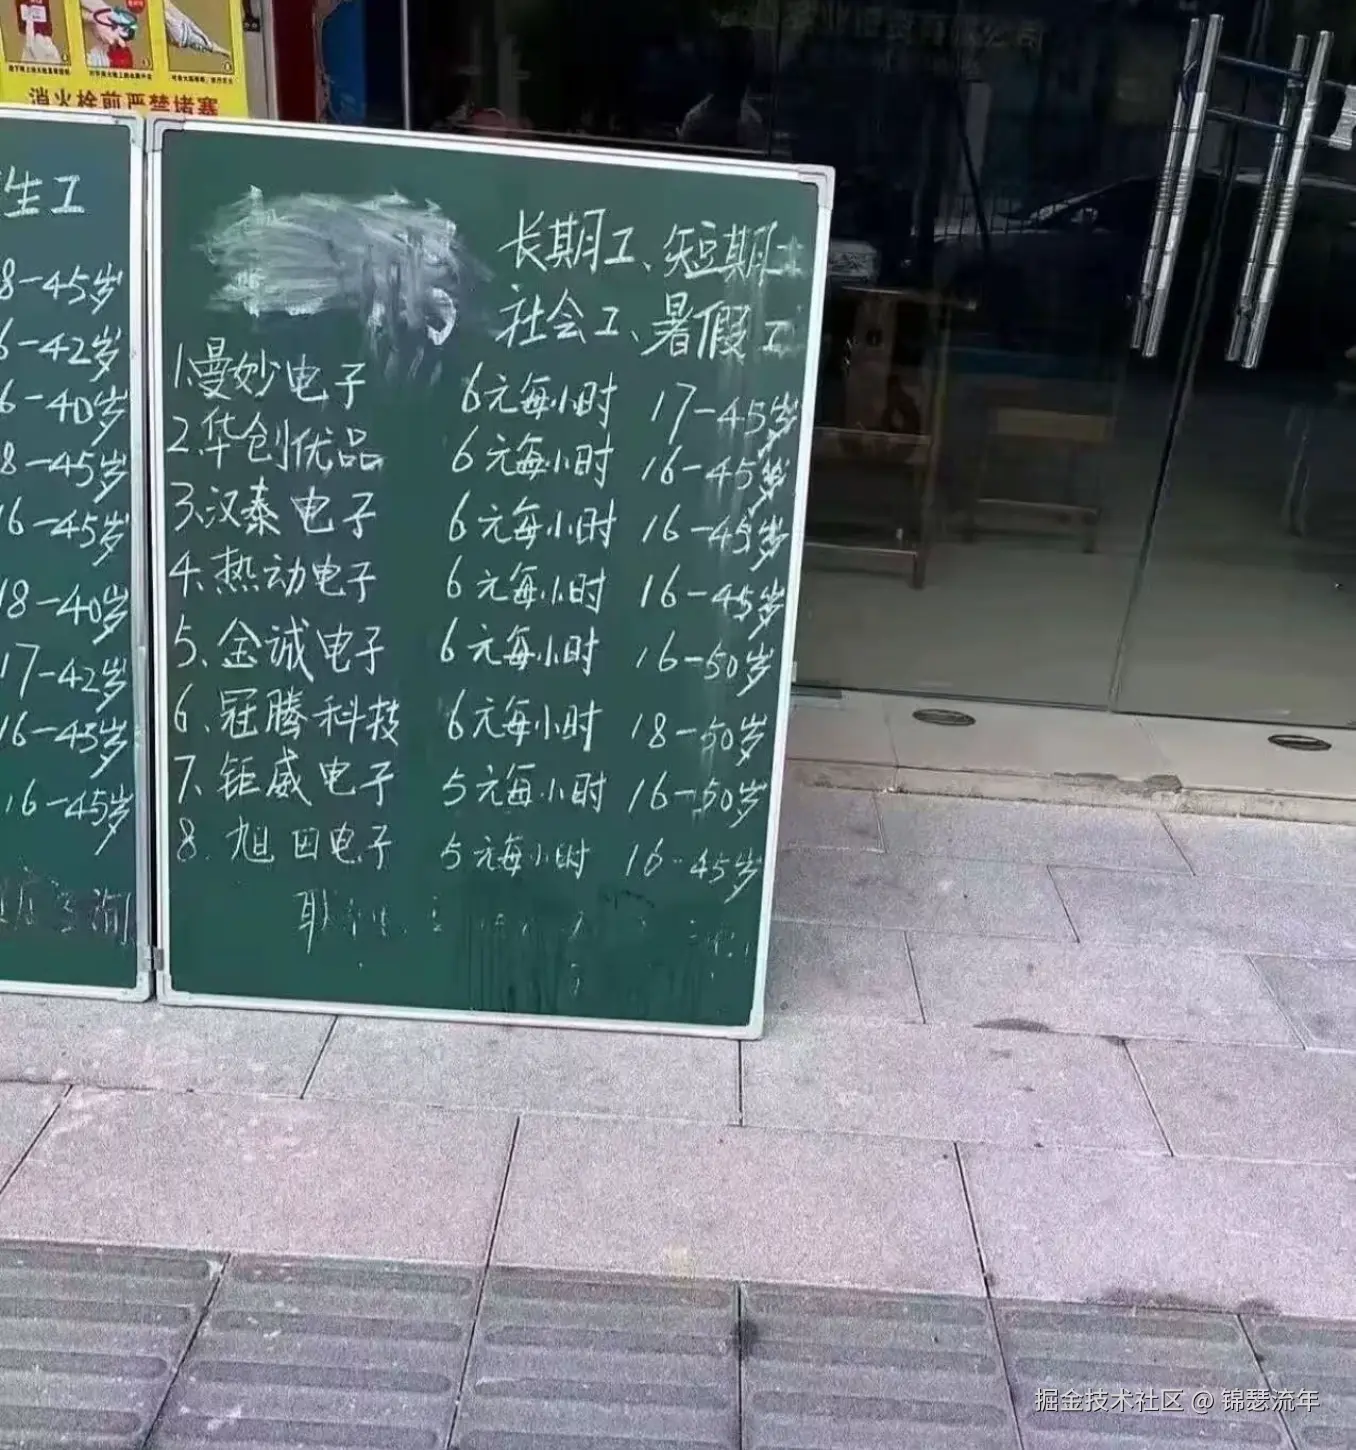 消火栓前严禁堵塞
生工
8-45岁
6-42岁
6-40岁
8-45岁
16-45岁
18-40岁
17-42岁
16-45岁
16-45岁
长期工、短期工
社会工、暑假工
1.曼妙电子 6元每小时 17-45岁
2.华创优品 6元每小时 16-45岁
3.汉泰电子 6元每小时 16-45岁
4.热动电子 6元每小时 16-45岁
5、金诚电子 6元每小时 16-50岁
6、冠腾科技 6元每小时 18-50岁
7、钜威电子 5元每小时 16-50岁
8.旭田电子 5元每小时 16-45岁
掘金技术社区 @ 锦瑟流年